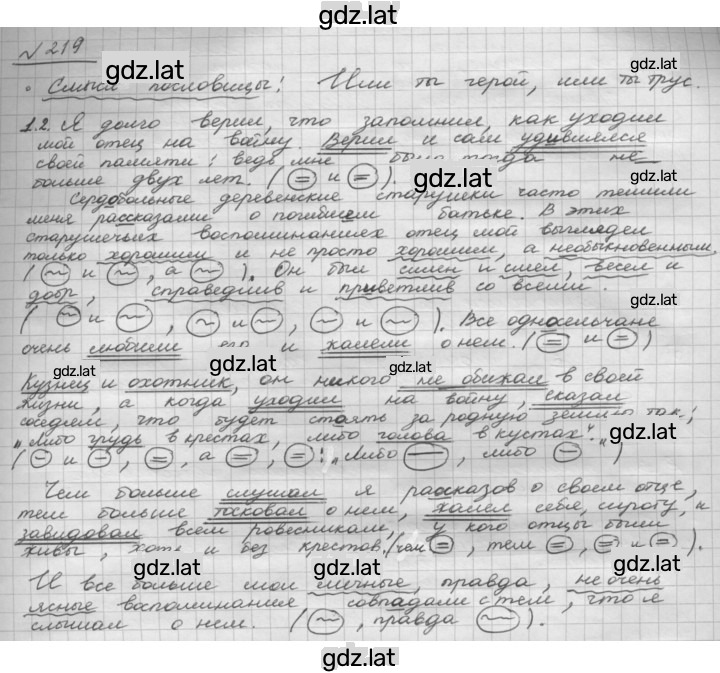 gdz.lat
№ 219
gdz.lat
gdz.lat
• Смысл пословицы: Или ты герой, или ты трус.
1.2. Я долго верил, что запомнил, как уходил
мой отец на войну. Верил и сам удивлялся
своей памяти: ведь мне было тогда не
gdz.lat
больше двух лет. ( = и = ).
Сердобольные деревенские старушки часто тешили
меня рассказами о погибшем батьке. В этих
gdz.lat
старушечьих воспоминаниях отец мой выглядел
только хорошим и не просто хорошим, а необыкновенным.
( ~ и ~, а ~ ). Он был силен и смел, весел и
добр, справедлив и приветлив со всеми.
gdz.lat
( ~ и ~, ~ и ~, ~ и ~ ). Все односельчане
очень любили его и жалели о нем. ( = и = )
gdz.lat
Кузнец и охотник, он никого не обижал в своей
жизни, а когда уходил на войну, сказал
соседям, что будет стоять за родную землю так:
„Либо грудь в крестах, либо голова в кустах".
gdz.lat
( – и –, =, а =, = : „Либо –, либо – )
Чем больше слушал я рассказов о своем отце,
тем больше тосковал о нем, жалел себя, сироту, и
завидовал всем ровесникам, у кого отцы были
gdz.lat
живы, хотя и без крестов. (чем =, тем =, = и = ).
gdz.lat
И все больше мои личные, правда, не очень
gdz.lat
ясные воспоминания совпадали с тем, что я
слышал о нем. ( ~, правда ~ ).
gdz.lat